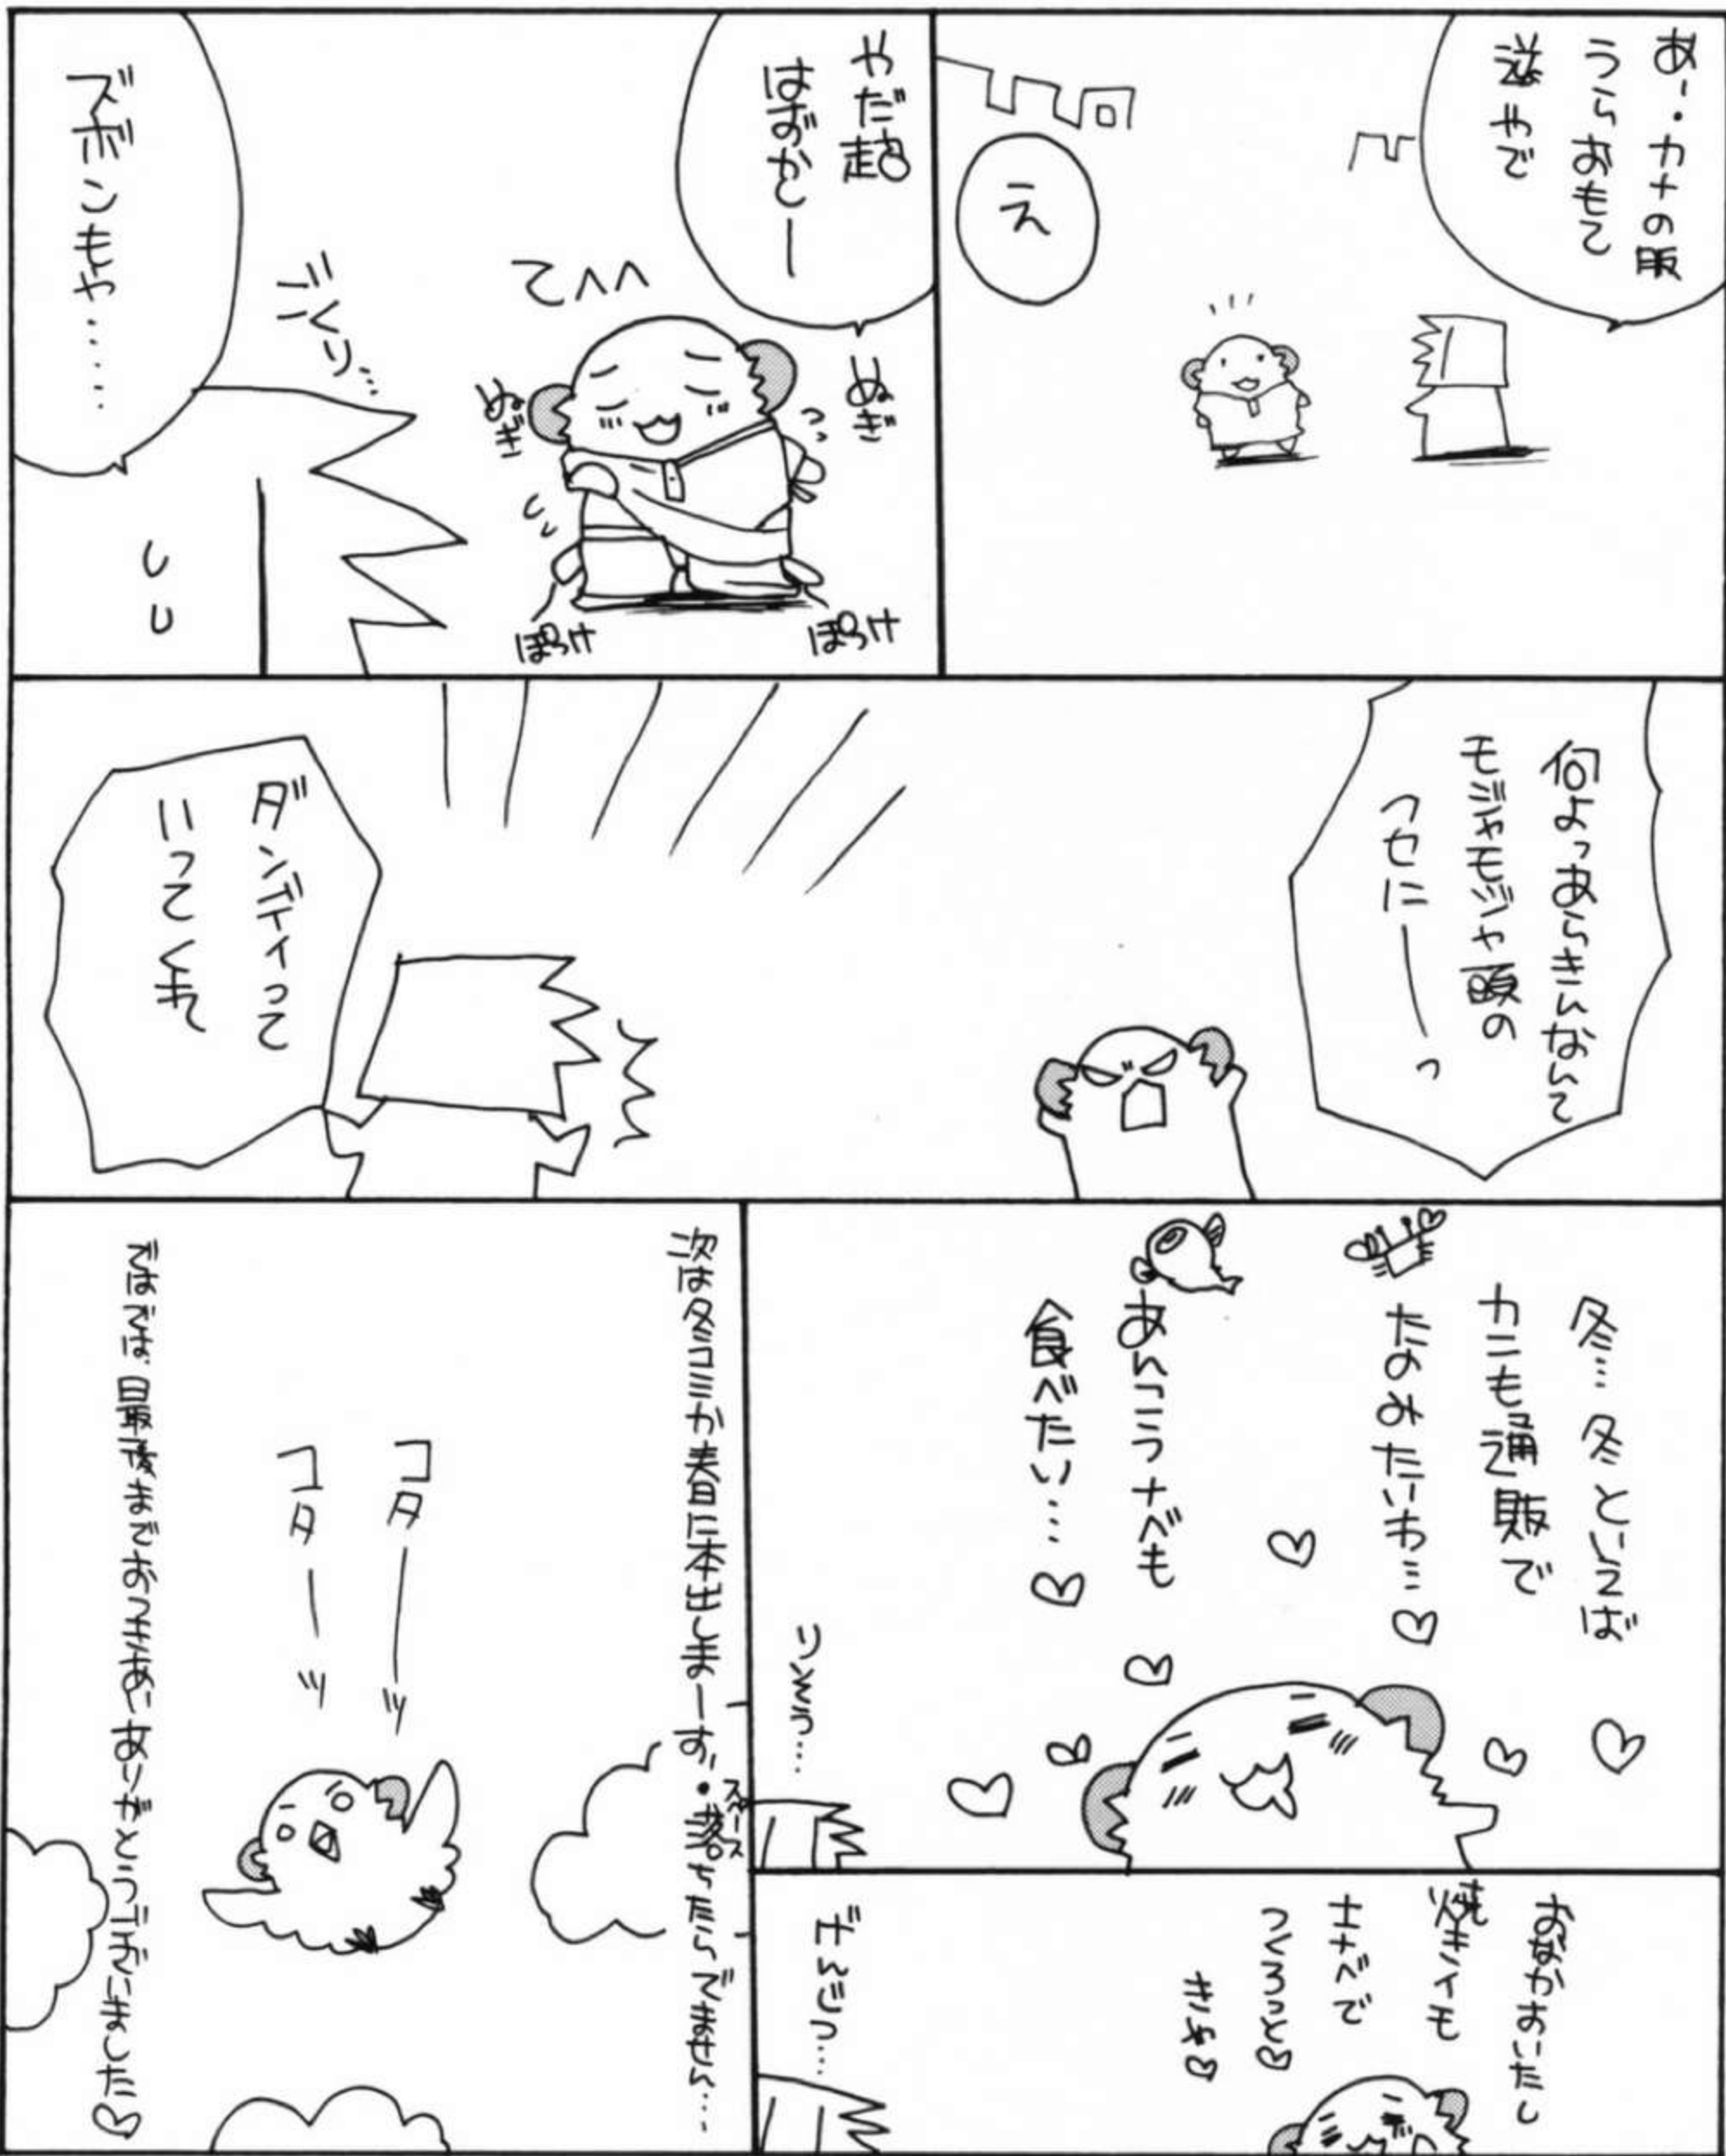 あー・カナの服
うらおもて
逆やで
え
やだ超
はずかしー
ぬぎ
ぬぎ
てへへ
ぽっけ
ぽっけ
じくり…
ズボンもや……
何よっあらきんなんて
モジャモジャ頭の
クセに──っ
ダンディって
いってくれ
冬…冬といえば
カニも通販で
たのみたいわ…♡
あんこうナベも
食べたい…♡
りそう…
おなかおいたし
焼きイモも
土ナベで
つくろっと♡
きゃ♡
げんじつ…
次は冬コミか春に本出しまーす。・落ちたらでません…
スペース
コターッ
コターッ
ではでは、最後までおつきあいありがとうございました♡